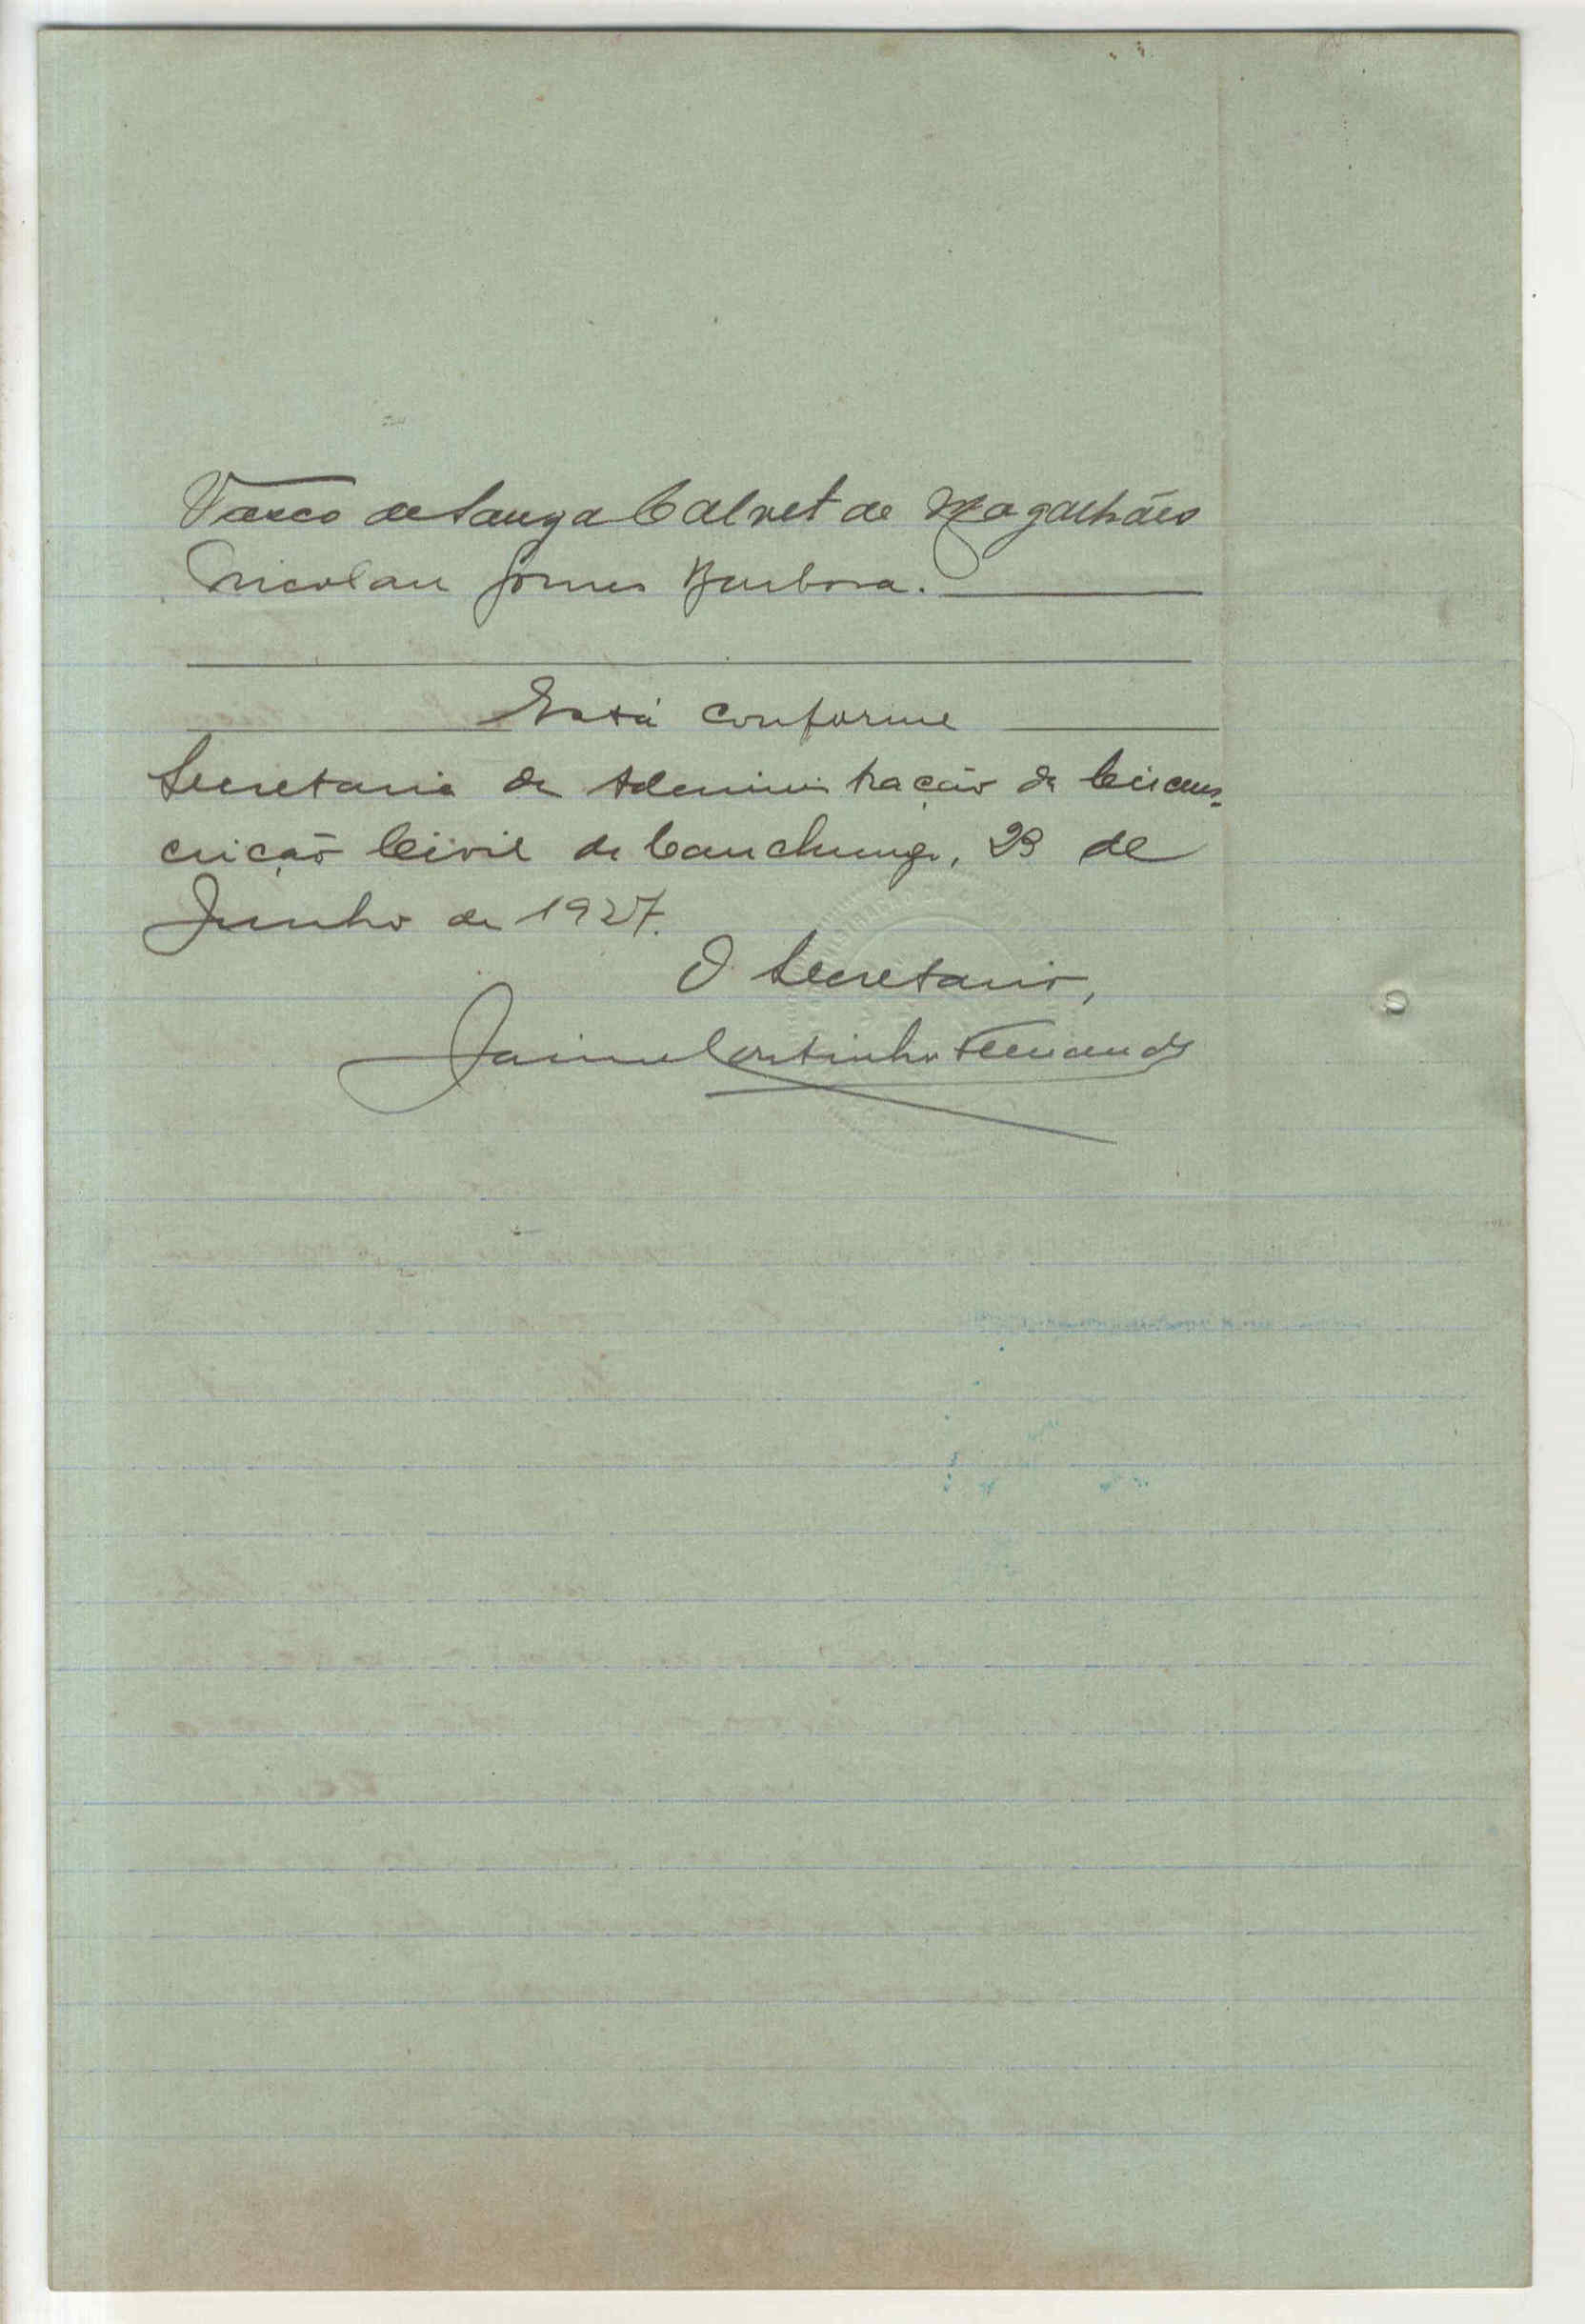 Vasco de Souza Calvet de Magalhães
Nicolau Gomes Barbosa.
Está conforme
Secretaria da Administração da Circuns-
crição Civil de Canchungo, 23 de
Junho de 1927.
O Secretario,
Jaime Coutinho Fernandes